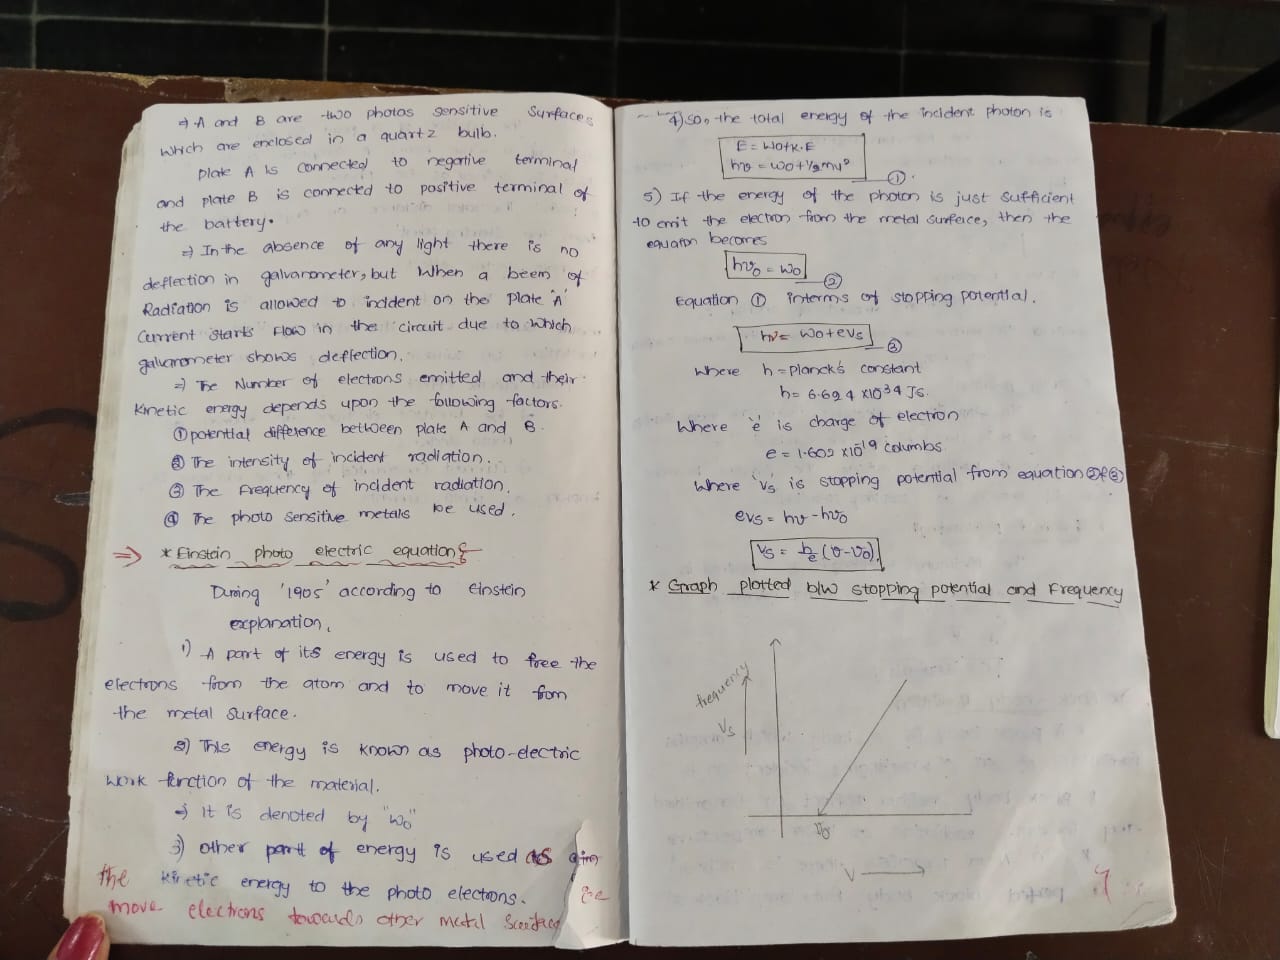 ⇒ A and B are two photos sensitive surfaces
which are enclosed in a quartz bulb.
plate A is connected to negative terminal
and plate B is connected to positive terminal of
the battery.
⇒ In the absence of any light there is no
deflection in galvanometer, but when a beem of
Radiation is allowed to incident on the plate 'A'
current starts Flow in the circuit due to which
galvanometer shows deffection.
⇒ The Number of electrons emitted and their
Kinetic energy depends upon the following factors.
① potential difference between plate A and B.
② The intensity of incident radiation.
③ The Frequency of incident radiation.
④ The photo sensitive metals be used.
⇒ * Einstein photo electric equation:
During '1905' according to Einstein
explanation,
1) A part of its energy is used to free the
electrons from the atom and to move it from
the metal surface.
2) This energy is known as photo-electric
work function of the material.
⇒ It is denoted by "w₀"
3) other part of energy is used as
the kinetic energy to the photo electrons.
move electrons towards other metal
4) So, the total energy of the incident photon is
E = W₀+K.E
hν = W₀+½mv²
①.
5) If the energy of the photon is just sufficient
to emit the electron from the metal surface, then the
equation becomes
hν₀ = W₀
②
Equation ① interms of stopping potential.
hν = W₀+eVs
③
Where h = planck's constant
h = 6.624 ×10³⁴ Js.
Where 'e' is charge of electron
e = 1.602 ×10⁻¹⁹ columbs
Where 'Vs' is stopping potential from equation ② & ③
eVs = hν - hν₀
Vs = h/e (ν-ν₀)
* Graph plotted b/w stopping potential and Frequency
frequency
Vs
ν₀
ν